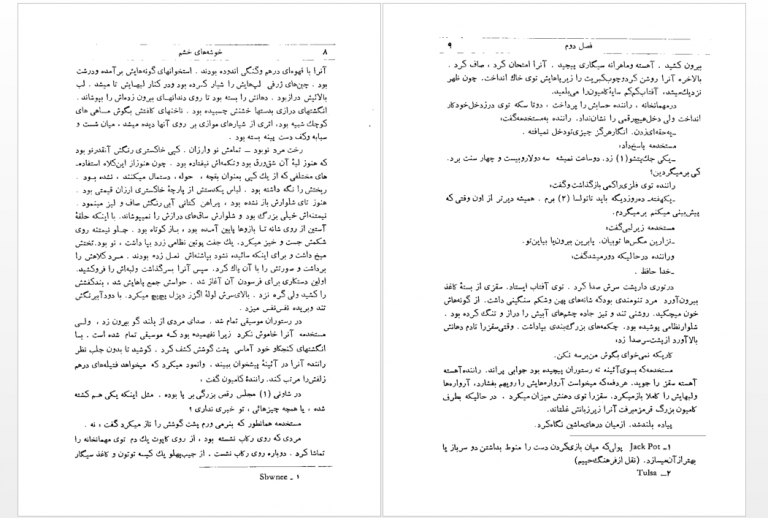 ۸ خوشه‌های خشم
آنرا با قهوه‌ای درهم وگنگی اندوده بودند . استخوانهای گونه‌هایش بر آمده ودرشت
بود . چین‌های ژرفی لپ‌هایش را شیار کرده بود ودر کنار لبهایش تا میشد . لب
بالائیش درازبود . دهانش را بسته بود تا روی دندانهای بیرون زده‌اش را بپوشاند .
انگشتهای درازی بدستها خشنش چسبیده بود . ناخنهای کلفتش بگوش ماهی های
کوچك شبیه بود، اثری از شیارهای موازی بر روی آنها دیده میشد . میان شست و
سبابه وکف دست پینه بسته بود .
رخت مرد نوبود ـ تمامش نو وارزان . کپی خاکستری رنگش آنقدرنو بود
که هنوز لبهٔ آن شق‌ورق بود ودکمه‌اش نیفتاده بود . چون هنوزاز این‌کلاه استفاده‌ـ
های مختلفی که از یك کپی بعنوان بقچه ، حوله ، دستمال میکنند ، نشده بود .
ریختش را نگه داشته بود . لباس یکدستش از پارچهٔ خاکستری ارزان قیمتی بود .
هنوز تای شلوارش باز نشده بود ، پیراهن کتانی آبی رنگش صاف و لیز مینمود .
نیمتنه‌اش خیلی بزرگ بود و شلوارش ساق‌های درازش را نمیپوشاند. با اینکه حلقهٔ
آستین از روی شانه تا بازوها پایین آمده بود ، باز کوتاه بود . جلو نیمتنه روی
شکمش جست و خیز میکرد. یك جفت پوتین نظامی زرد بپا داشت ، نو بود.تختش
میخ داشت و برای اینکه سائیده نشود بپاشنه‌اش نعل زده بودند. مرد کلاهش را
برداشت و صورتش را با آن پاك کرد. سپس آنرا بسرگذاشت ولبه‌اش را فروکشید.
اولین دستکاری برای فرسودن آن آغاز شد . حواسش جمع پاهایش شد ، بندکفشش
را کشید ولی گره نزد . بالای‌سرش لولهٔ اگزز دیزل پچ‌پچ میکرد. با دودآبی‌رنگش
تند وبریده نفس‌نفس میزد .
در رستوران موسیقی تمام شد . صدای مردی از بلند گو بیرون زد ، ولی
مستخدمه آنرا خاموش نکرد زیرا نفهمیده بود که موسیقی تمام شده است . با
انگشتهای کنجکاو خود آماسی پشت گوشش کشف کرد . کوشید تا بدون جلب نظر
راننده آنرا در آئینهٔ پیشخوان ببیند. وانمود میکرد که میخواهد فتیله‌های درهم
زلفش‌را مرتب کند. رانندهٔ کامیون گفت ،
در شاونی (۱) مجلس رقص بزرگی بر پا بوده . مثل اینکه یکی هم کشته
شده ، یا همچه چیزهائی ، تو خبری نداری ؟
مستخدمه همانطور که بنرمی ورم پشت گوشش را ناز میکرد گفت ، نه .
مردی که روی رکاب نشسته بود ، از روی کاپوت یك دم توی مهمانخانه را
تماشا کرد . دوباره روی رکاب نشست . از جیب‌پهلو یك کیسه توتون و کاغذ سیگار
۱ ـ Sbwnee
فصل دوم ۹
بیرون کشید . آهسته وماهرانه سیگاری پیچید . آنرا امتحان کرد ، صاف کرد .
بالاخره آنرا روشن کردوچوب‌کبریت را زیرپاهایش توی خاك انداخت. چون ظهر
نزدیك‌میشد، آفتاب‌کم‌کم سایهٔ‌کامیون‌را می‌بلعید.
درمهمانخانه ، راننده حسابش را پرداخت ، دوتا سکه توی درزدخل‌خودکار
انداخت ولی دخل‌هیچ‌رقمی را نشان‌نداد. راننده به‌مستخدمه‌گفت،
ـ یه‌حقه‌ای‌زدن. انگارهرگز چیزی‌تودخل نمیافته .
مستخدمه پاسخ‌داد،
ـ یکی جك‌پتشو(۱) زد. وساعت نمیشه سه‌دولاروبیست و چهار سنت برد.
کی برمیگردین؟
راننده توی فلزی‌راکمی بازگذاشت‌وگفت،
ـ یکهفته‌ـ ده‌روزدیگه باید تاتولسا (۲) برم . همیشه دیرتر از اون وقتی که
پیش‌بینی میکنم برمیگردم.
مستخدمه زیرلبی‌گفت،
ـ نزارین مگس‌ها توبیان. یابرین بیرون‌یا بیاین‌تو.
وراننده درحالیکه دورمیشدگفت،
ـ خدا حافظ .
درتوری داربشت سرش صدا کرد . توی آفتاب ایستاد. سقزی از بستهٔ کاغذ
بیرون‌آورد مرد تنومندی بودکه شانه‌های پهن وشکم سنگینی داشت. از گونه‌هاش
خون میچکید. روشنی تند و تیز جاده چشم‌های آبیش را دراز و تنگ کرده بود .
شلوارنظامی پوشیده بود. چکمه‌های بزرگ‌بندی بپاداشت . وقتی‌سقزرا تادم دهانش
بالاآورد ازپشت‌سرصدا زد،
کاریکه نمی‌خوای بگوش من‌برسه نکن.
مستخدمه‌که بسوی‌آئینه ته رستوران پیچیده بود جوابی پراند. راننده‌آهسته
آهسته سقز را جوید. هردفعه‌که میخواست آرواره‌هایش را رویهم بفشارد، آرواره‌ها
ولبهایش را کاملا بازمیکرد. سقزرا توی دهنش میزان میکرد . در حالیکه بطرف
کامیون بزرگ قرمزمیرفت آنرا زیرزبانش غلتاند.
پیاده بلندشد. ازمیان درهای‌ماشین نگاه‌کرد.
۱ـ Jack Pot پولی‌که میان بازی‌کردن دست را منوط بداشتن دو سرباز یا
بهتر ازآن‌میسازد. (نقل ازفرهنگ‌حییم)
۲ـ Tulsa